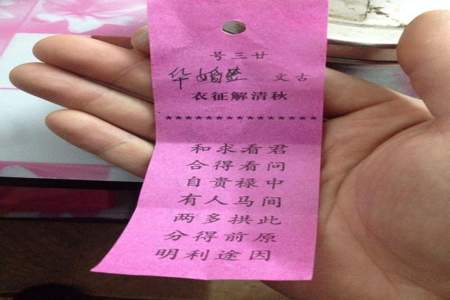 廿三号
古文
秋清解征衣
君问中间此原因
看看禄马拱前途
求得贵人多得利
和合自有两分明